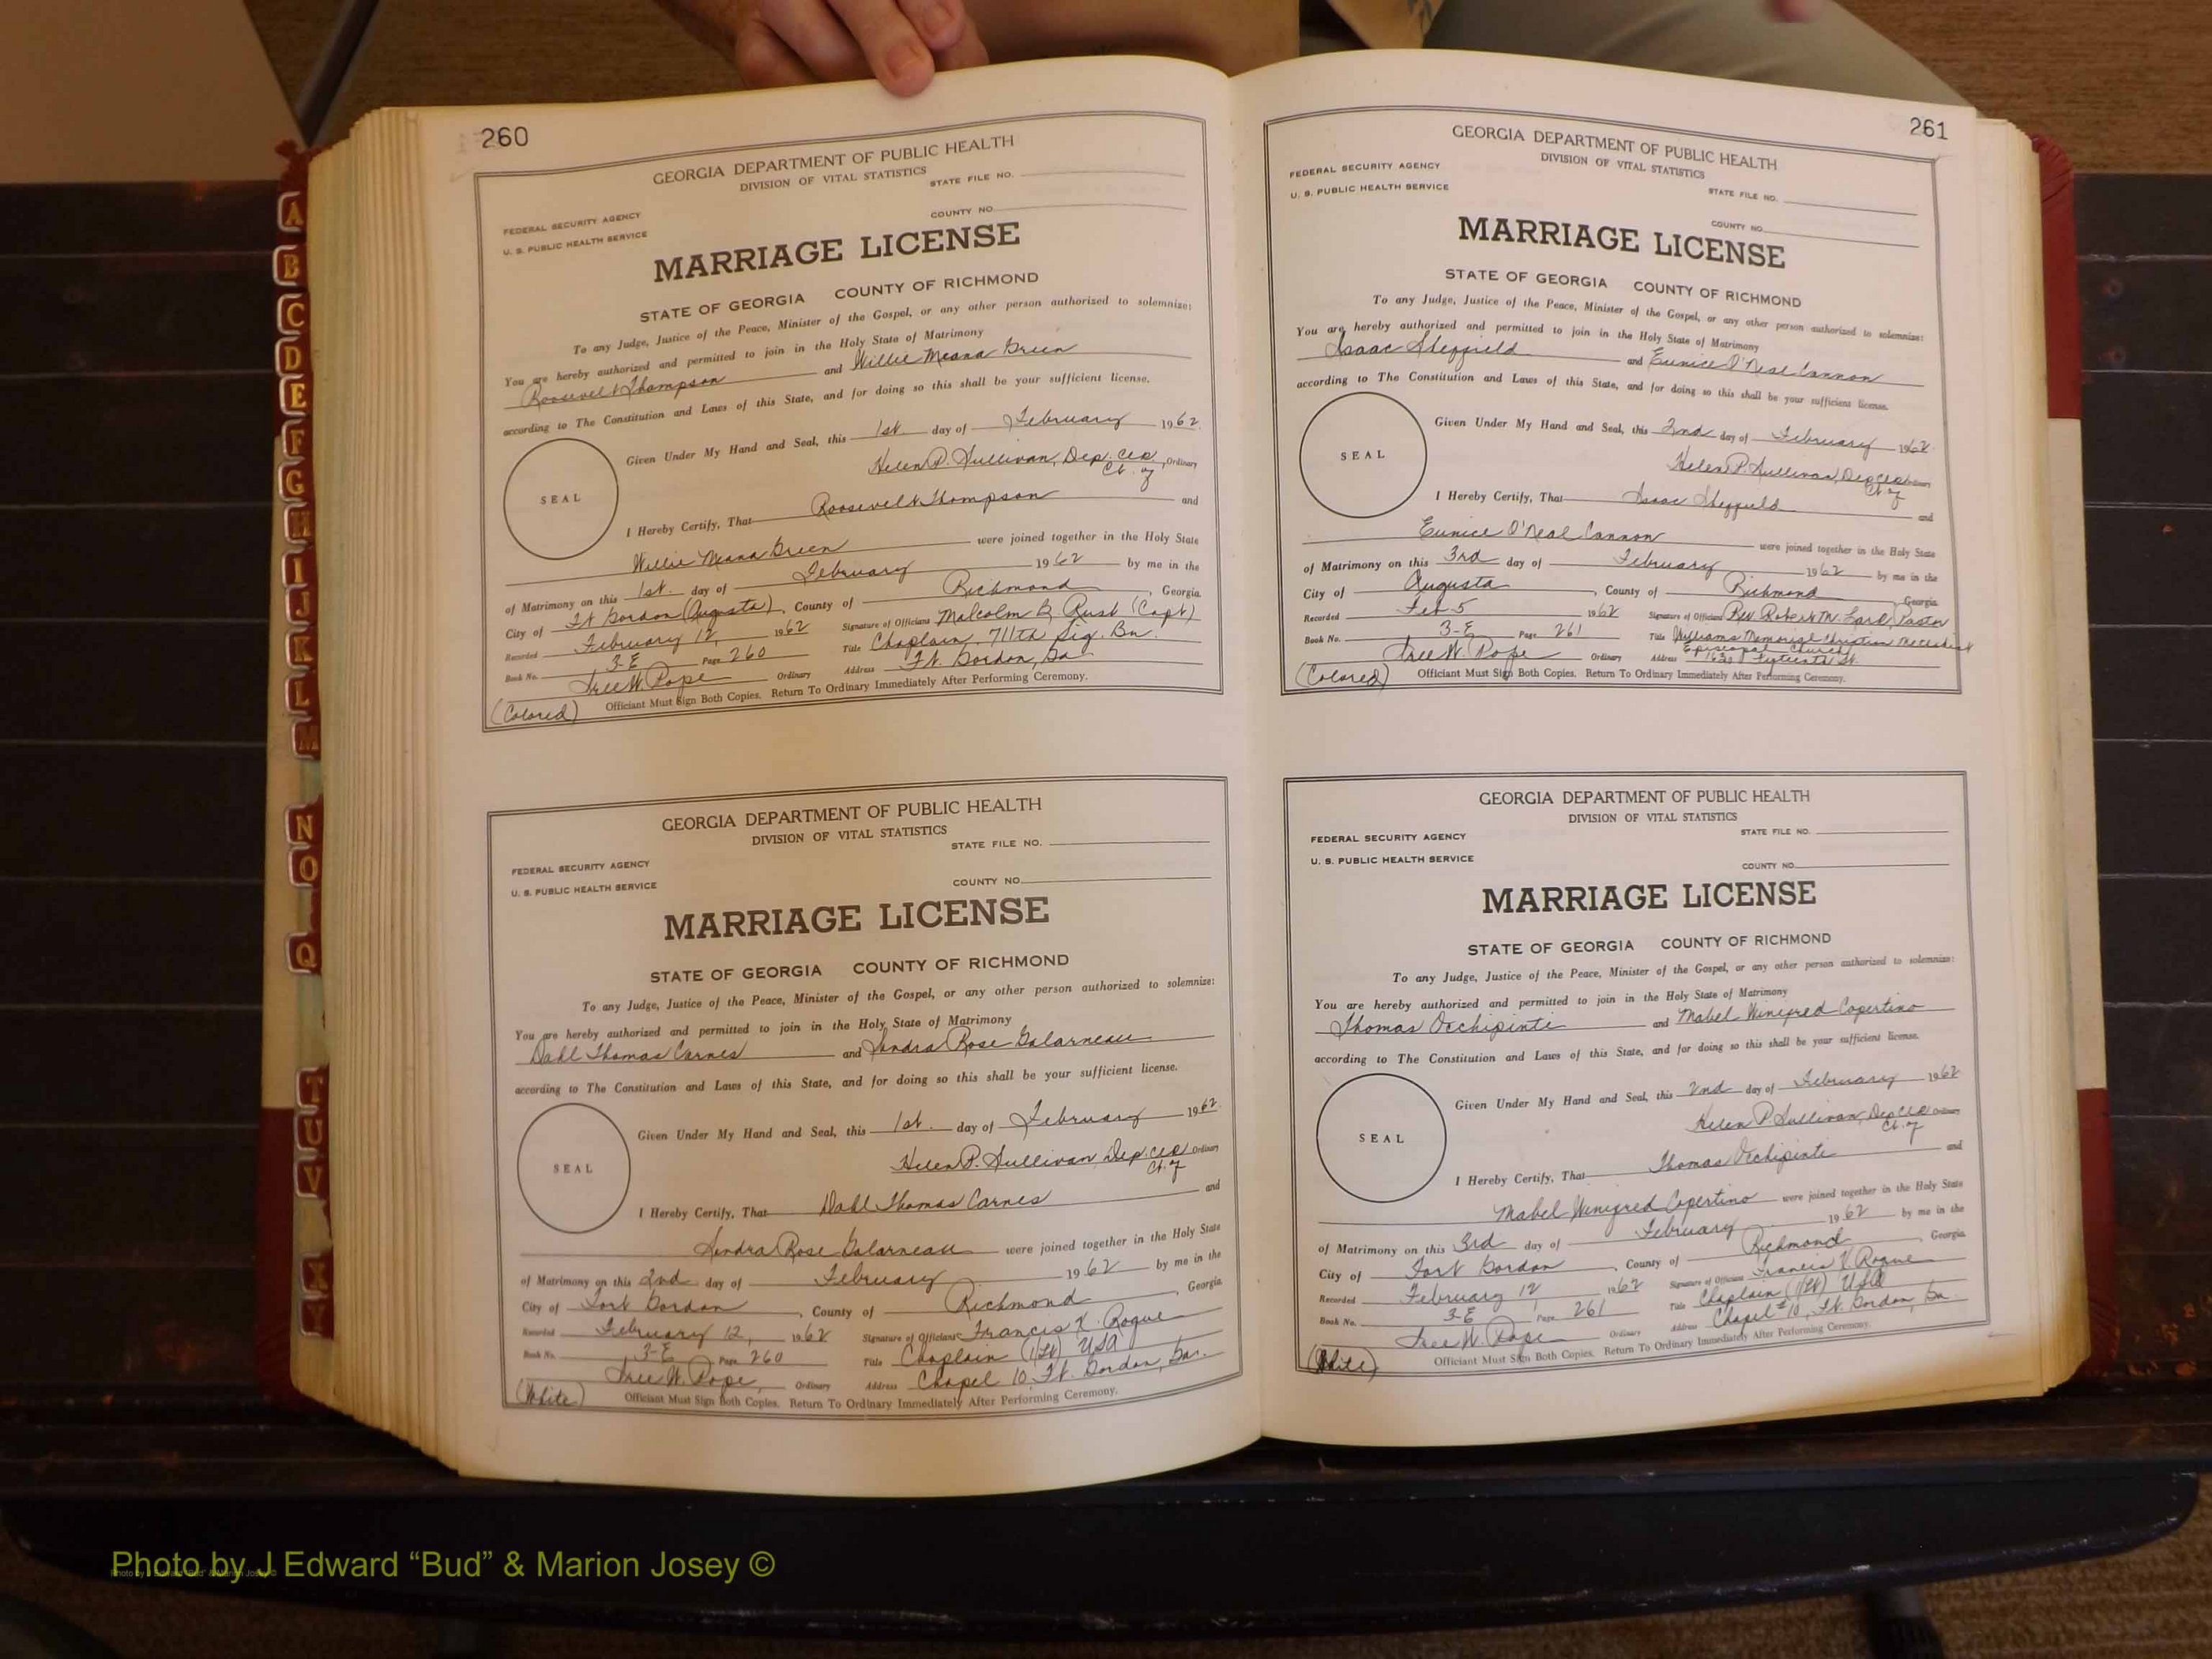 260
GEORGIA DEPARTMENT OF PUBLIC HEALTH
DIVISION OF VITAL STATISTICS
STATE FILE NO.
FEDERAL SECURITY AGENCY
U. S. PUBLIC HEALTH SERVICE
COUNTY NO.
MARRIAGE LICENSE
STATE OF GEORGIA COUNTY OF RICHMOND
To any Judge, Justice of the Peace, Minister of the Gospel, or any other person authorized to solemnize:
You are hereby authorized and permitted to join in the Holy State of Matrimony
Roosevelt Thompson and Willie Meana Green
according to The Constitution and Laws of this State, and for doing so this shall be your sufficient license.
Given Under My Hand and Seal, this 1st. day of February 1962.
Helen P. Sullivan, Dep. Clk. Ordinary
Ct. of
SEAL
I Hereby Certify, That Roosevelt Thompson and
Willie Meana Green were joined together in the Holy State
of Matrimony on this 1st. day of February 1962 by me in the
City of Ft Gordon (Augusta), County of Richmond, Georgia.
Recorded February 12, 1962 Signature of Officiant Malcolm B. Rust (Capt)
Book No. 3-E Page 260 Title Chaplain, 711th Sig. Bn.
Tree W. Pope Ordinary Address Ft. Gordon, Ga
(Colored) Officiant Must Sign Both Copies. Return To Ordinary Immediately After Performing Ceremony.
GEORGIA DEPARTMENT OF PUBLIC HEALTH
DIVISION OF VITAL STATISTICS
STATE FILE NO.
FEDERAL SECURITY AGENCY
U. S. PUBLIC HEALTH SERVICE
COUNTY NO.
MARRIAGE LICENSE
STATE OF GEORGIA COUNTY OF RICHMOND
To any Judge, Justice of the Peace, Minister of the Gospel, or any other person authorized to solemnize:
You are hereby authorized and permitted to join in the Holy State of Matrimony
Dahl Thomas Carnes and Sandra Rose Galarneau
according to The Constitution and Laws of this State, and for doing so this shall be your sufficient license.
Given Under My Hand and Seal, this 1st. day of February 1962.
Helen P. Sullivan, Dep. Clk Ordinary
Ct. of
SEAL
I Hereby Certify, That Dahl Thomas Carnes and
Sandra Rose Galarneau were joined together in the Holy State
of Matrimony on this 2nd day of February 1962 by me in the
City of Fort Gordon, County of Richmond, Georgia
Recorded February 12, 1962 Signature of Officiant Francis X. Rogue
Book No. 3-E Page 260 Title Chaplain (1/Lt) USA
Tree W. Pope, Ordinary Address Chapel 10, Ft. Gordon, Ga.
(White) Officiant Must Sign Both Copies. Return To Ordinary Immediately After Performing Ceremony.
261
GEORGIA DEPARTMENT OF PUBLIC HEALTH
DIVISION OF VITAL STATISTICS
FEDERAL SECURITY AGENCY
U. S. PUBLIC HEALTH SERVICE
STATE FILE NO.
COUNTY NO.
MARRIAGE LICENSE
STATE OF GEORGIA COUNTY OF RICHMOND
To any Judge, Justice of the Peace, Minister of the Gospel, or any other person authorized to solemnize:
You are hereby authorized and permitted to join in the Holy State of Matrimony
Isaac Sheffield and Eunice O'Neal Cannon
according to The Constitution and Laws of this State, and for doing so this shall be your sufficient license.
Given Under My Hand and Seal, this 2nd day of February 1962
Helen P. Sullivan, Dep Clk Ordinary
Ct. of
SEAL
I Hereby Certify, That Isaac Sheffield and
Eunice O'Neal Cannon were joined together in the Holy State
of Matrimony on this 3rd day of February 1962 by me in the
City of Augusta, County of Richmond, Georgia
Recorded Feb 5 1962 Signature of Officiant Rev. Robert M. Pastor
Book No. 3-E Page 261 Title Williams Memorial Christian Methodist
Episcopal Church
Tree W. Pope Ordinary Address 1630 Fifteenth St.
(Colored) Officiant Must Sign Both Copies. Return To Ordinary Immediately After Performing Ceremony.
GEORGIA DEPARTMENT OF PUBLIC HEALTH
DIVISION OF VITAL STATISTICS
STATE FILE NO.
FEDERAL SECURITY AGENCY
U. S. PUBLIC HEALTH SERVICE
COUNTY NO.
MARRIAGE LICENSE
STATE OF GEORGIA COUNTY OF RICHMOND
To any Judge, Justice of the Peace, Minister of the Gospel, or any other person authorized to solemnize:
You are hereby authorized and permitted to join in the Holy State of Matrimony
Thomas Occhipinti and Mabel Winifred Copertino
according to The Constitution and Laws of this State, and for doing so this shall be your sufficient license.
Given Under My Hand and Seal, this 2nd day of February 1962
Helen P. Sullivan, Dep Clk Ordinary
Ct. of
SEAL
I Hereby Certify, That Thomas Occhipinti and
Mabel Winifred Copertino were joined together in the Holy State
of Matrimony on this 3rd day of February 1962 by me in the
City of Fort Gordon, County of Richmond, Georgia
Recorded February 12 1962 Signature of Officiant Francis X Rogue
Book No. 3-E Page 261 Title Chaplain (1/Lt) USA
Tree W. Pope Ordinary Address Chapel #10, Ft. Gordon, Ga.
(White) Officiant Must Sign Both Copies. Return To Ordinary Immediately After Performing Ceremony.
A
B
C
D
E
F
G
H
I
J
K
L
M
N
O
Q
T
U
V
X
Y
Photo by J Edward “Bud” & Marion Josey ©
Photo by J Edward “Bud” & Marion Josey ©